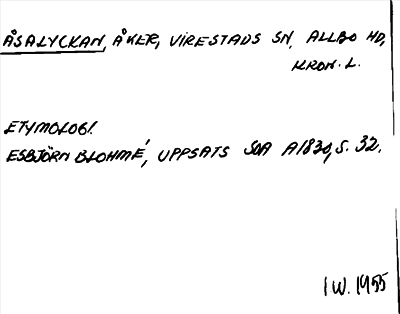 ÅSALYCKAN, ÅKER, VIRESTADS SN, ALLBO HD,
KRON. L.
ETYMOLOGI.
ESBJÖRN BLOHMÉ, UPPSATS SOA A1830, S. 32.
IW. 1955